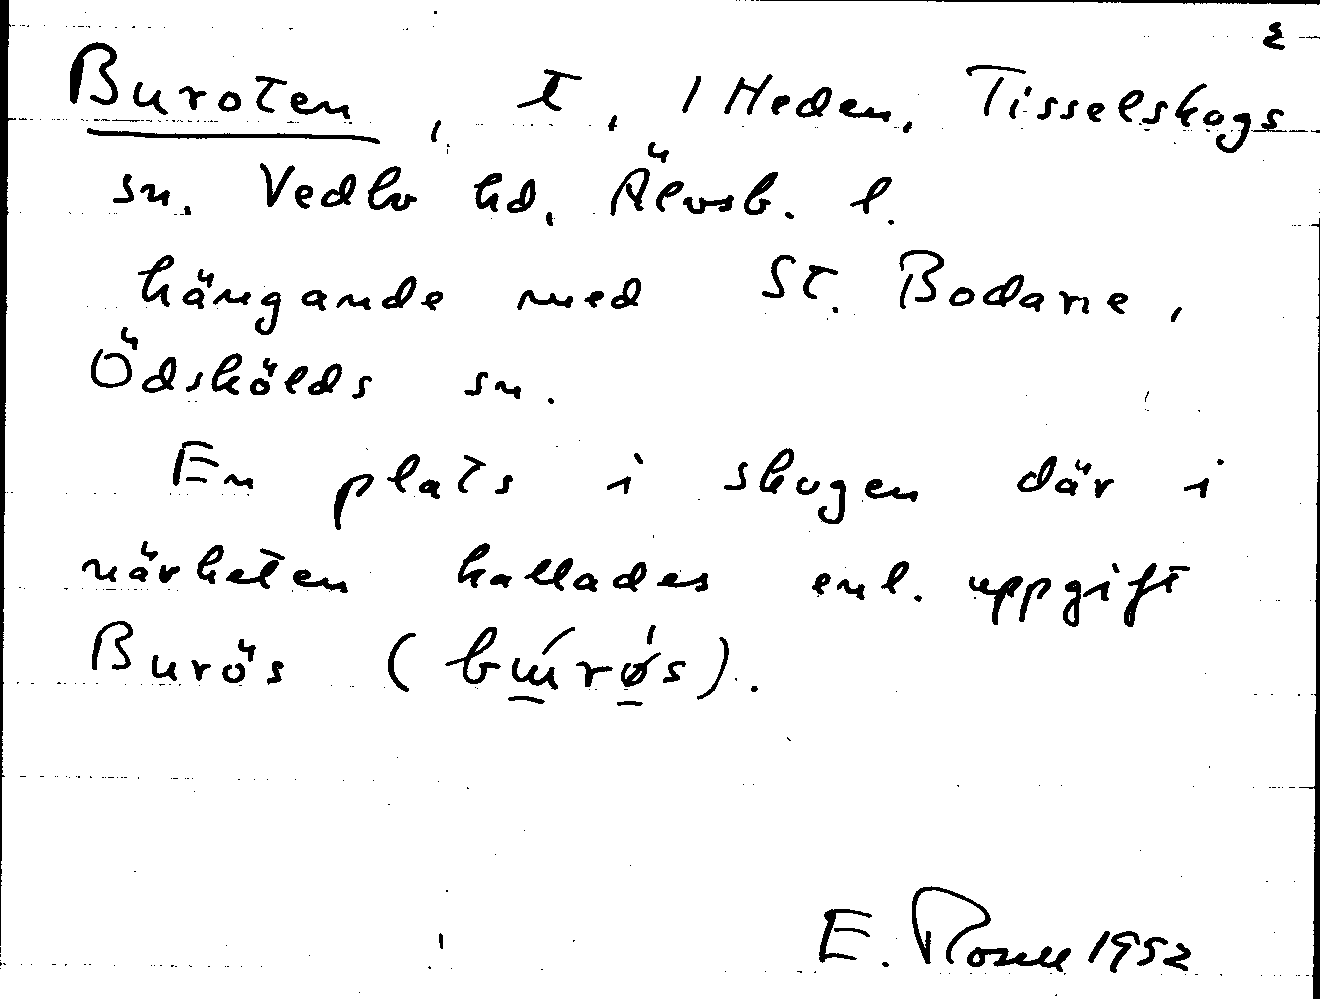 2
Buroten, t, 1 Heden, Tisselskogs
sn. Vedbo hd. Älvsb. l.
hängande med St. Bodane,
Ödskölds sn.
En plats i skogen där i
närheten kallades enl. uppgift
Burös (bú̱rǿ̱s).
E. Rosell 1952